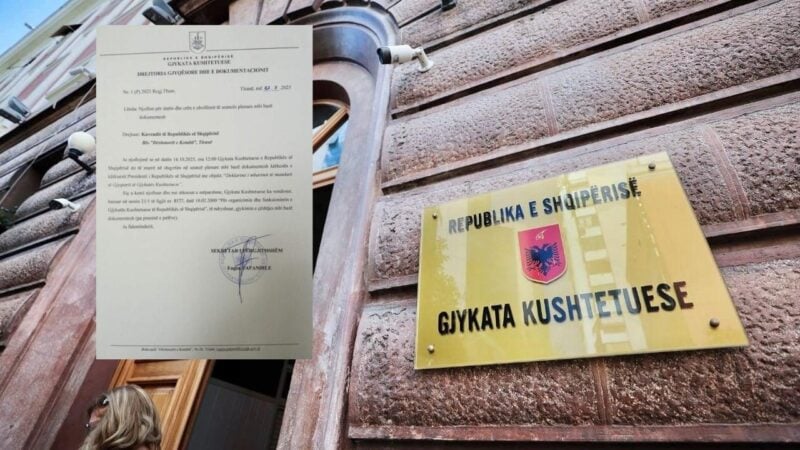 REPUBLIKA E SHQIPËRISË
GJYKATA KUSHTETUESE
DREJTORIA GJYQËSORE DHE E DOKUMENTACIONIT
Tiranë, më 2025
Lënda: Njoftim për datën dhe orën e zhvillimit të seancës plenare mbi bazë
dokumentesh
Drejtuar: Kuvendit të Republikës së Shqipërisë
Blv. "Dëshmorët e Kombit", Tiranë
Ju njoftojmë se në datën 14.10.2025, ora 12:00 Gjykata Kushtetuese e Republikës së
Shqipërisë do të marrë në shqyrtim në seancë plenare mbi bazë dokumentesh kërkesën e
Presidenti i Republikës së Shqipërisë me objekt: "Deklarimi i mbarimit të mandatit
të Gjyqtarit të Gjykatës Kushtetuese".
Gjykata Kushtetuese ka vendosur,
bazuar në nenin 21/1 të ligjit nr. 8577, datë 10.02.2000 "Për organizimin dhe funksionimin e
Gjykatës Kushtetuese të Republikës së Shqipërisë", të ndryshuar, gjykimin e çështjes mbi bazë
dokumentesh (pa praninë e palëve).
Ju faleminderit,
SEKRETAR I PËRGJITHSHËM
REPUBLIKA E SHQIPËRISË
GJYKATA KUSHTETUESE